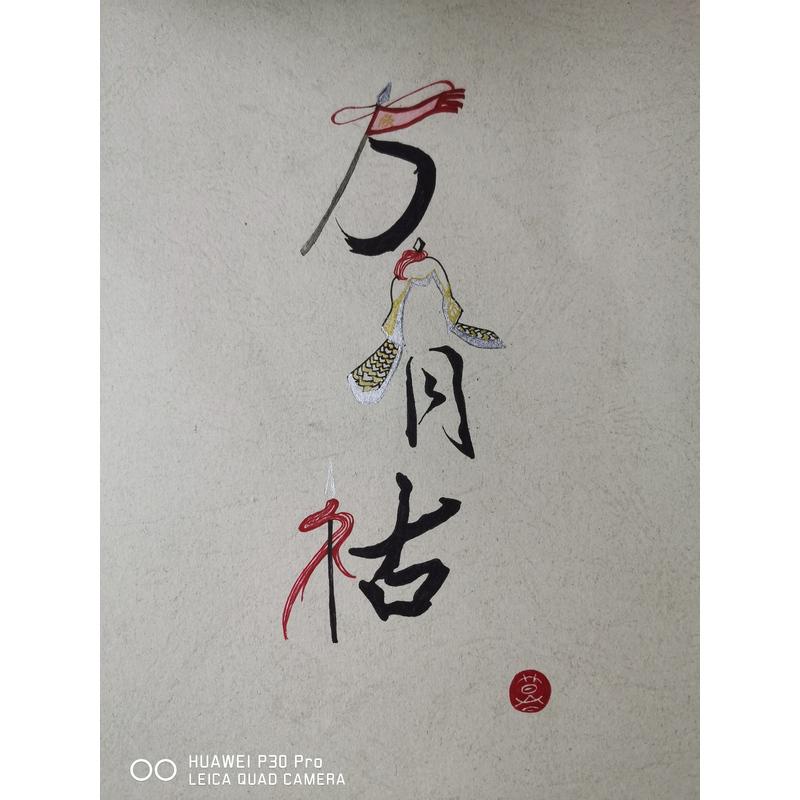 万骨枯
HUAWEI P30 Pro
LEICA QUAD CAMERA